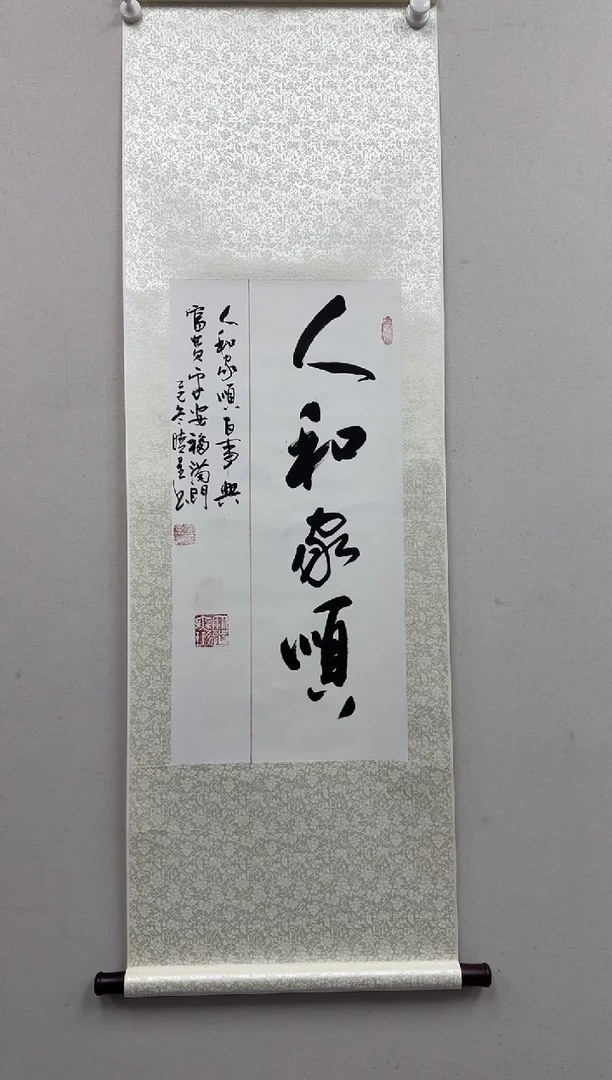 人和家順
人和家順百事興
富貴平安福滿門
冬晴